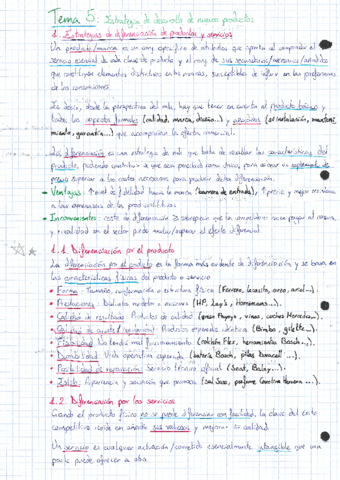 Tema 5: Estrategia de desarrollo de nuevos productos
1. Estrategias de diferenciación de productos y servicios
Un producto/marca es un conj. específico de atributos que aporta al comprador el
servicio esencial de cada clase de producto y el conj. de sus secundarios/necesarios/añadidos
que constituyen elementos distintivos entre las marcas, susceptibles de influir en las preferencias
de los consumidores.
Es decir, desde la perspectiva del mk, hay que tener en cuenta el producto básico y
todos los aspectos formales (calidad, marca, diseño...) y añadidos (ej instalación, manteni
miento, garantía...) que acompañan la oferta comercial.
La diferenciación es una estrategia de mk que trata de resaltar las características del
producto, pudiendo contribuir a que sean percibido como único, para cobrar un suplemento de
precio superior a los costes asociados para producir dicha diferenciación.
Ventajas: ↑ nivel de fidelidad hacia la marca (barrera de entrada), ↑ precio y mejor resistencia
a las amenazas de los prod. sustitutivos.
Inconvenientes: coste de diferenciación es superior a que los consumidores estén pagar al comprar,
y rivalidad en el sector puede anular/superar el efecto diferencial
1.1. Diferenciación por el producto
La diferenciación por el producto es la forma más evidente de diferenciación y se basa en
las características físicas del producto o servicio
• Forma: Tamaño, configuración o estructura física (Ferrero, lacasito, oreo, ariel...)
• Prestaciones: Distintos modelos o versiones (HP, Lay's, Hacendado...).
• Calidad de resultados: Productos de calidad (queso Payoyo, vinos, coches Mercedes...).
• Calidad de ajuste/regularidad: Productos esperados idéntica (Bimbo, gilette...).
• Fiabilidad: No tendrá mal funcionamiento (colchón Flex, herramientas Bosch...).
• Durabilidad: Vida operativa esperada (batería Bosch, pilas Duracell...).
• Posibilidad de reparación: Servicio técnico oficial (Seat, Balay...).
• Estilo: Apariencia y sensación que provoca (sal Sosa, perfume Carolina Herrera...).
1.2. Diferenciación por los servicios
Cuando el producto físico no se puede diferenciar con facilidad, la clave del éxito
competitivo reside en añadir sus valiosos y mejorar su calidad.
Un servicio es cualquier actuación/cometido esencialmente intangible que una
parte puede ofrecer a otra